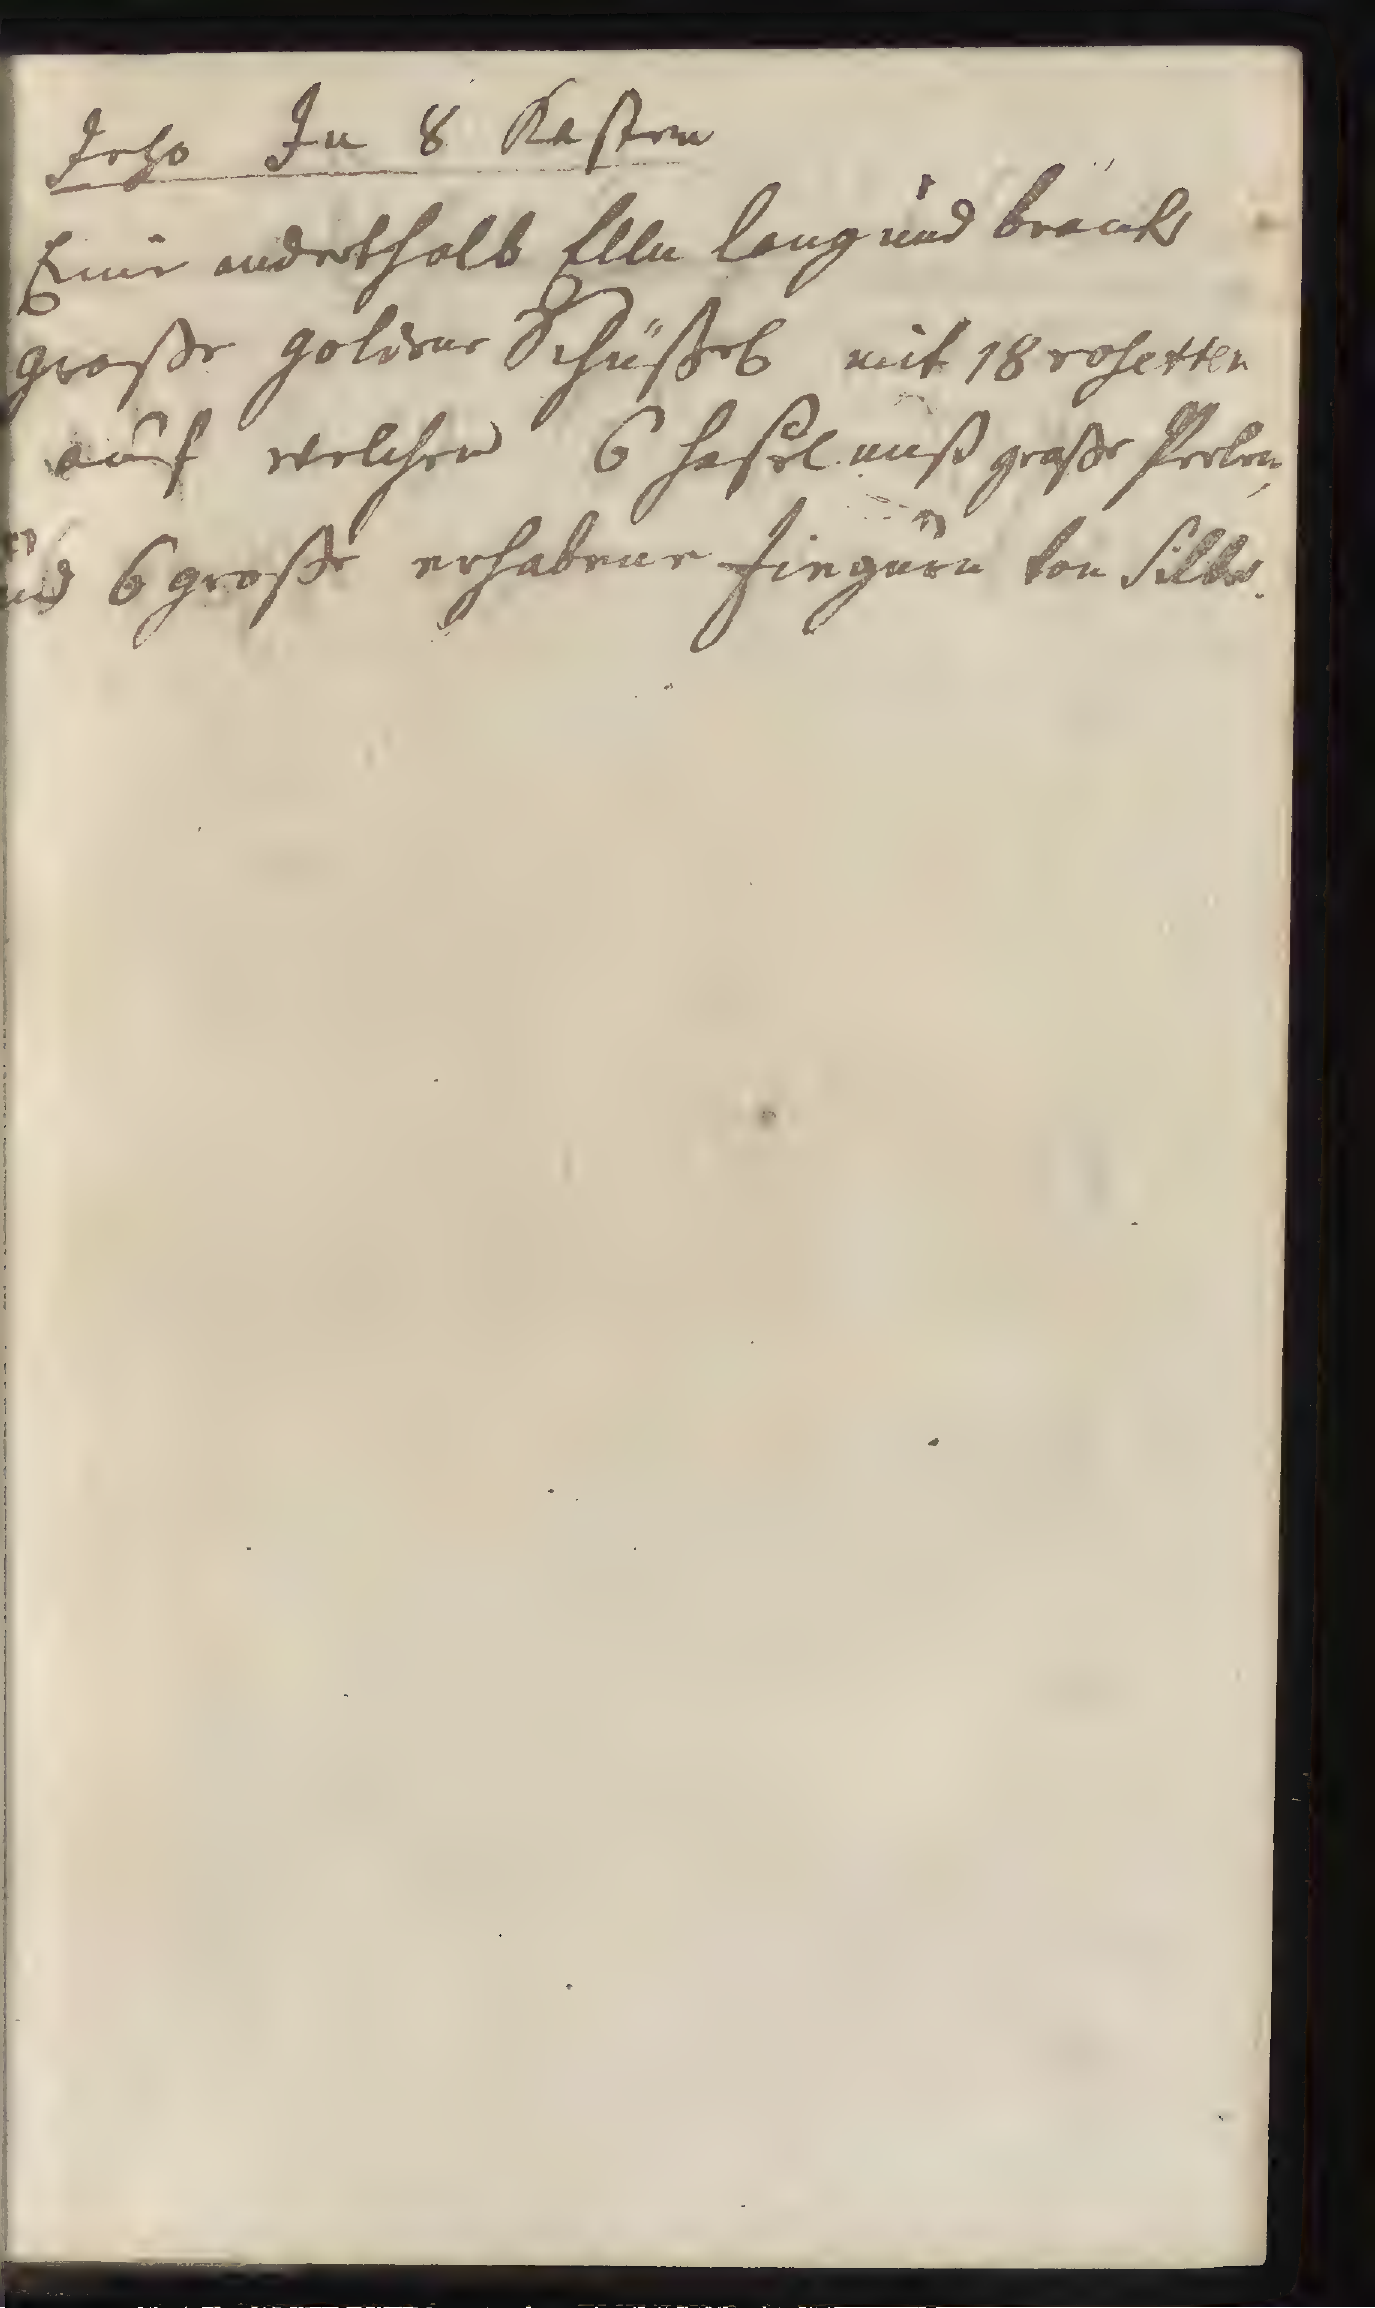 In 8 Kasten
Eine anderthalb Elln lang und
große goldene Schüßel mit 18 rosetten
auf welchen 6 hasel nuß große Perlen,
und 6 große erhabene Fiegurn von Silber.